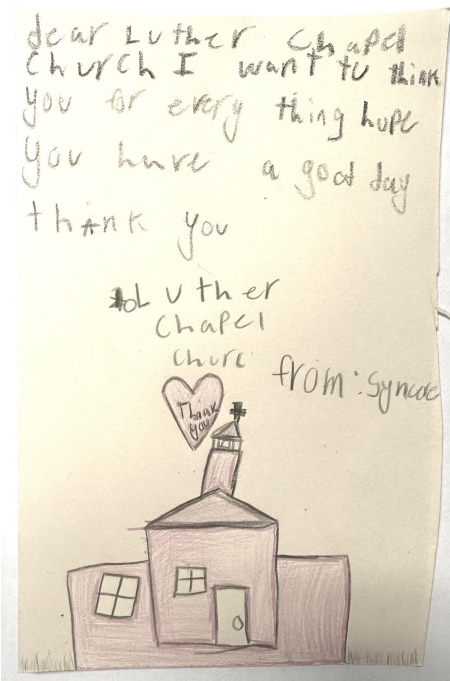 dear Luther Chapel
Church I want to think
you for every thing hope
you have a good day
thank you
Luther
Chapel
Churc
from:
Thank
you